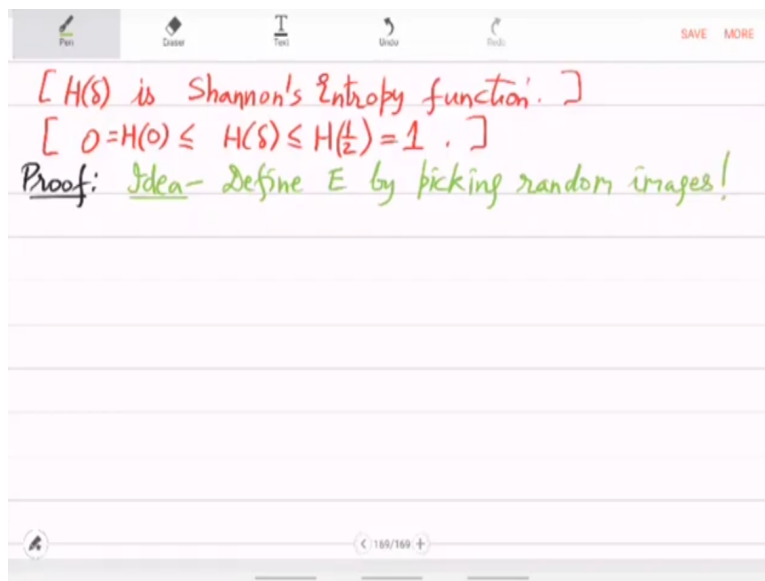 Pen Eraser Text Undo Redo SAVE MORE
[ H(δ) is Shannon's Entropy function. ]
[ 0=H(0) ≤ H(δ) ≤ H(1/2) = 1 . ]
Proof: Idea- Define E by picking random images!
< 169/169 +